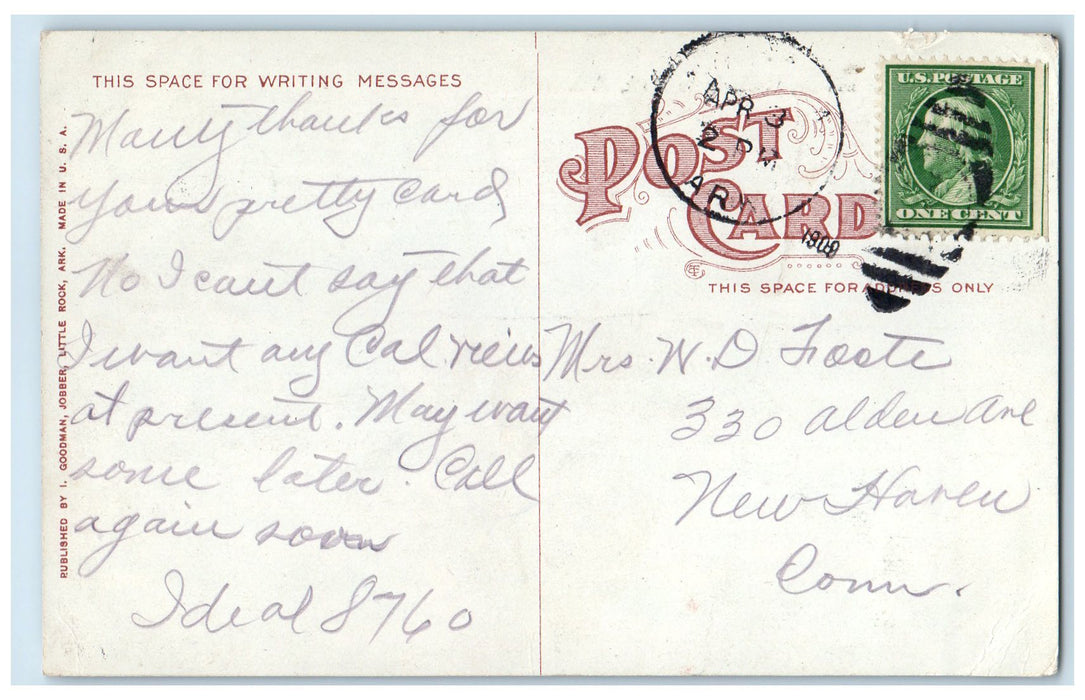 THIS SPACE FOR WRITING MESSAGES
Many thanks for
your pretty card
No I cant say that
I want any Cal views
at present. May want
some later. Call
again soon
Ideal 8760
PUBLISHED BY I. GOODMAN, JOBBER, LITTLE ROCK, ARK. MADE IN U. S. A.
POST CARD
APR 3
2 PM
ARK
U.S. POSTAGE
ONE CENT
THIS SPACE FOR ADDRESS ONLY
Mrs. W. D Foote
330 Alden Ave
New Haven
Conn.